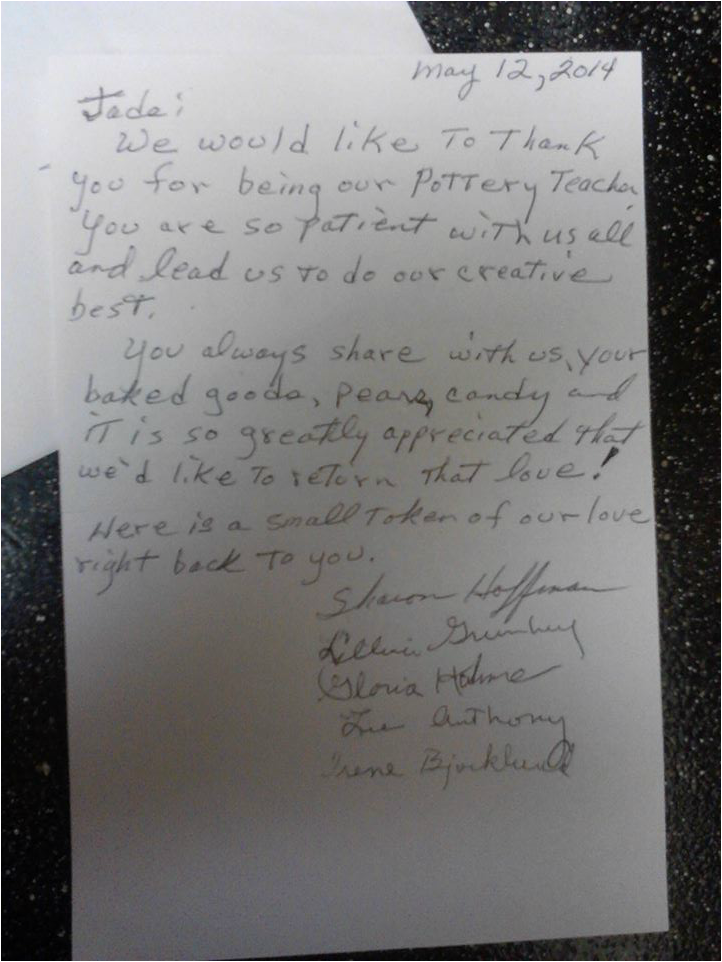 May 12, 2014
Jade:
We would like To Thank
you for being our Pottery Teacher
You are so patient with us all
and lead us to do our creative
best.
You always share with us, your
baked goods, pears, candy and
iT is so greatly appreciated that
we'd like To return That love!
Here is a small Token of our love
right back To you.
Sharon Hoffman
Gloria Holme
Anthony
Irene Bjorklund